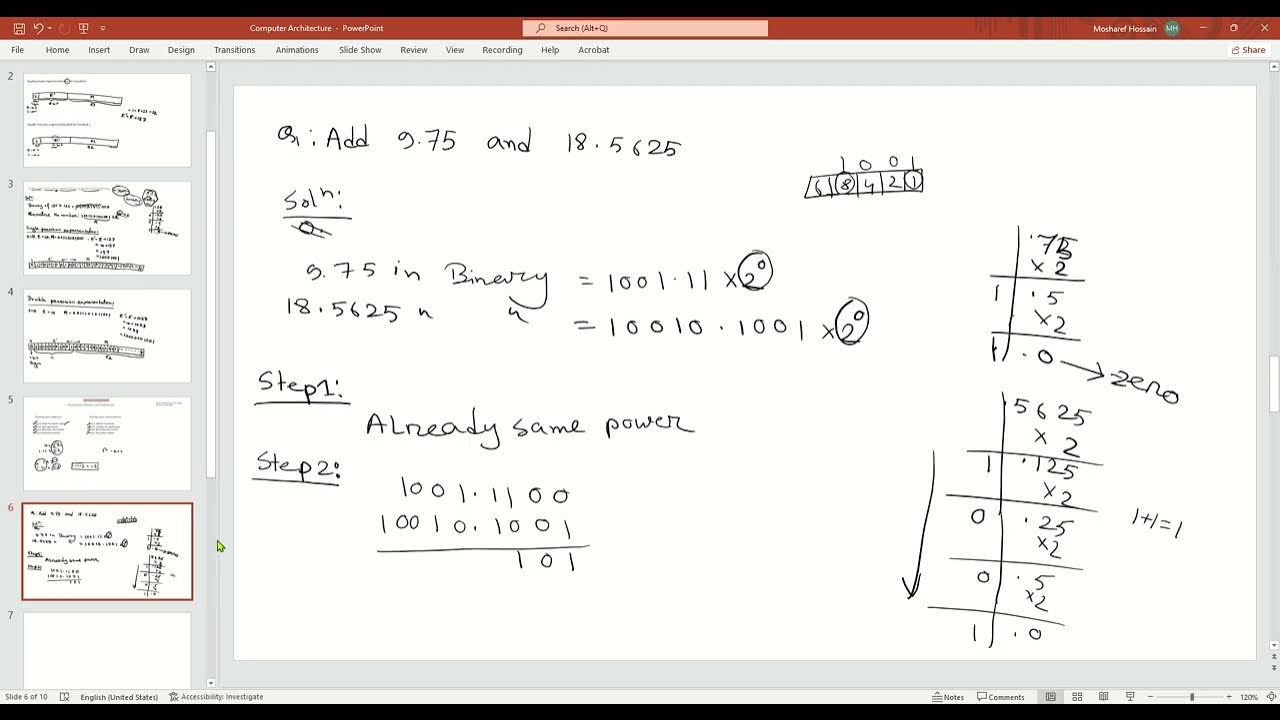 Computer Architecture - PowerPoint
Search (Alt+Q)
Mosharef Hossain
MH
File Home Insert Draw Design Transitions Animations Slide Show Review View Recording Help Acrobat
Share
2
3
4
5
6
7
Q: Add 9.75 and 18.5625
Solⁿ:
1 0 0 1
6 8 4 2 1
9.75 in Binary = 1001.11 × 2⁰
18.5625 " " = 10010.1001 × 2⁰
Step1:
Already same power
Step2:
1001.1100
10010.1001
101
.75
× 2
1 .5
×2
1 .0 → zero
.5625
× 2
1 .125
×2
0 .25
×2
0 .5
×2
1 .0
1+1=1
Slide 6 of 10
English (United States)
Accessibility: Investigate
Notes
Comments
120%